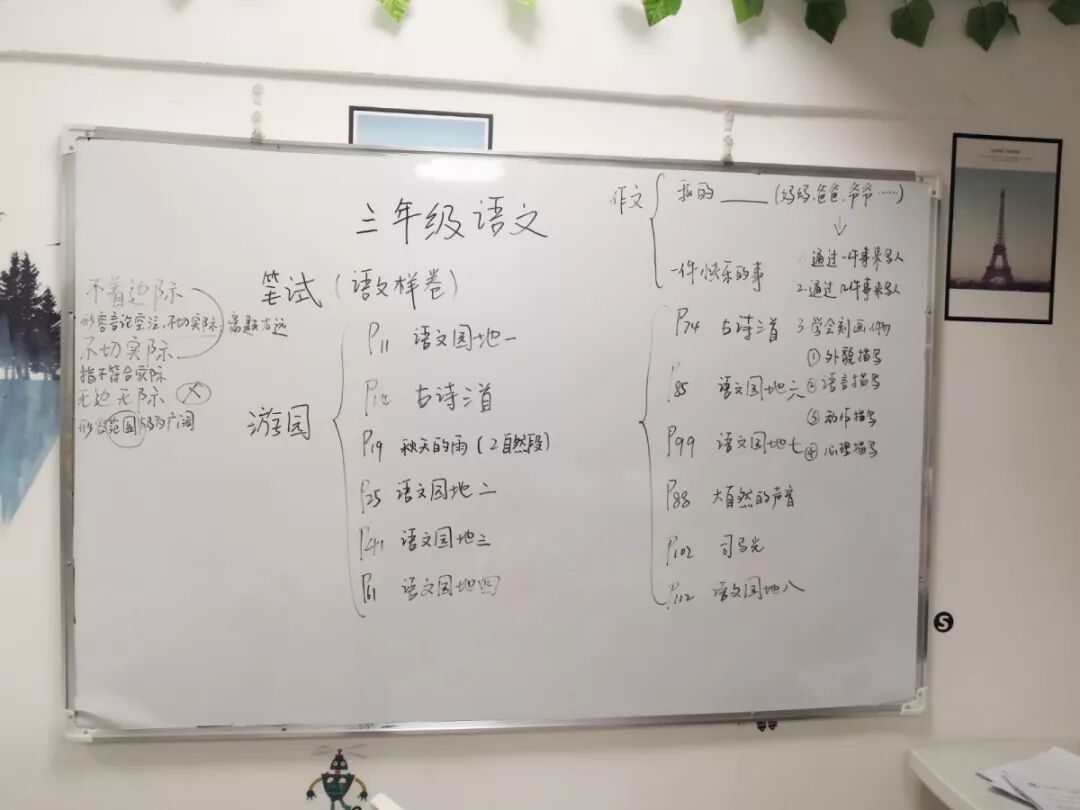 三年级语文
作文
我的____(妈妈、爸爸、爷爷……)
↓
1.通过一件事来写人
一件快乐的事
2.通过几件事来写人
3.学会刻画人物
①外貌描写
②语言描写
③动作描写
④心理描写
笔试(语文样卷)
不着边际
形容言论空泛,不切实际,离题太远
不切实际
指不符合实际
无边无际 ×
形容范围极为广阔
游园
P11 语文园地一
P12 古诗三首
P19 秋天的雨(2自然段)
P25 语文园地二
P41 语文园地三
P61 语文园地四
P74 古诗三首
P85 语文园地六
P99 语文园地七
P88 大自然的声音
P102 司马光
P112 语文园地八
S